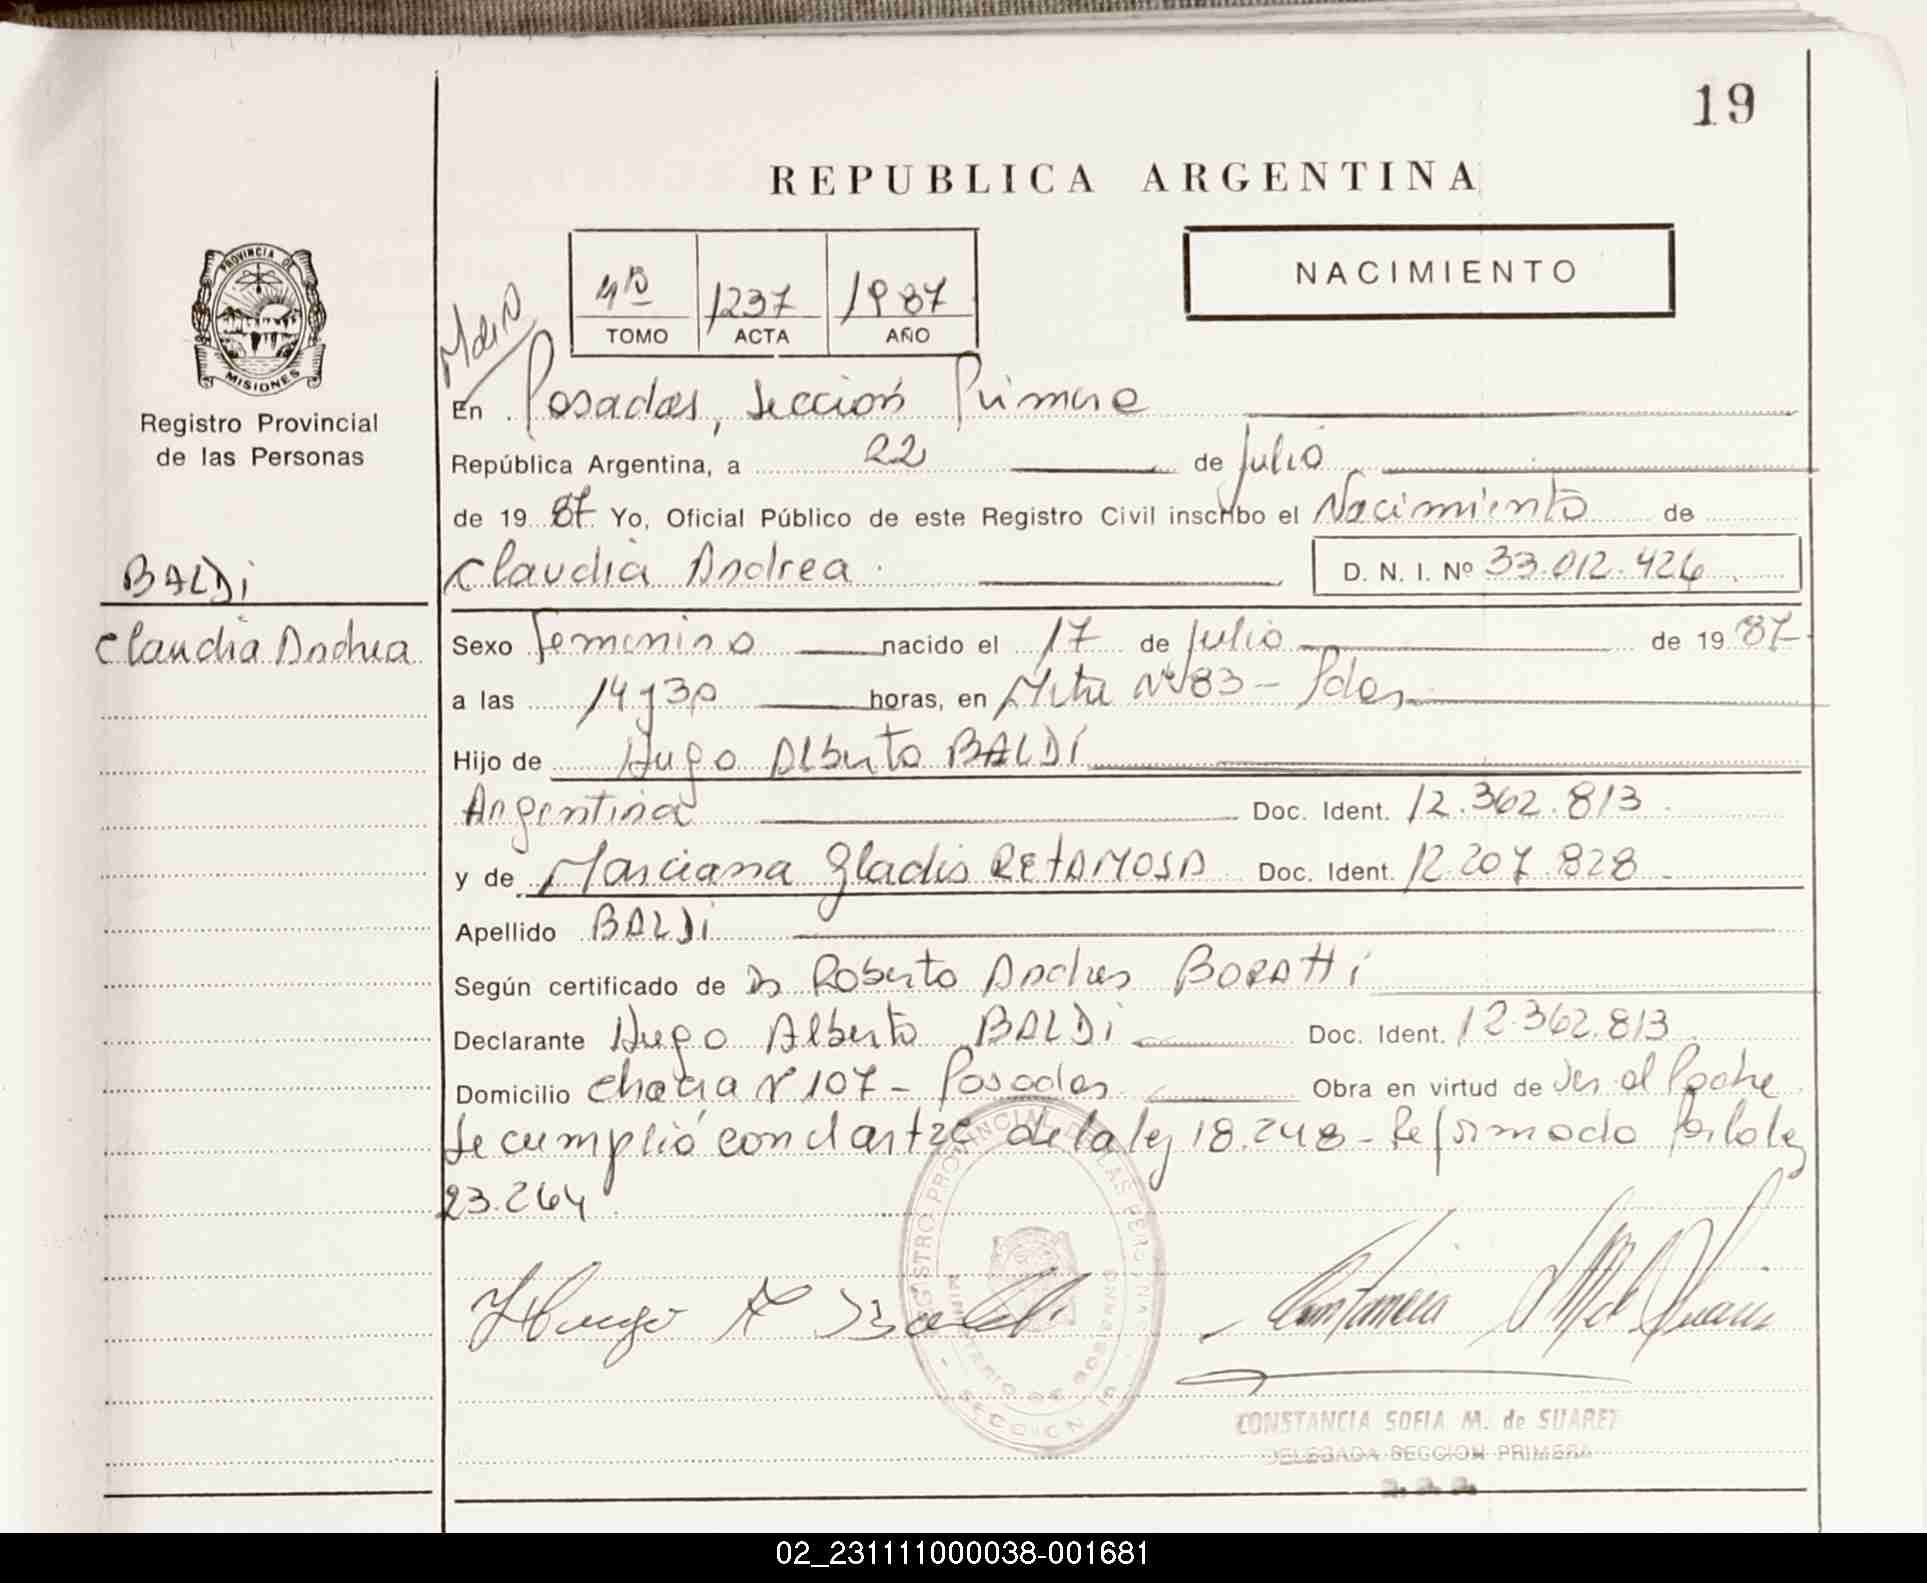 19
REPUBLICA ARGENTINA
PROVINCIA DE
MISIONES
Registro Provincial
de las Personas
NACIMIENTO
TOMO 1237 ACTA 1987 AÑO
En Posadas, Sección Primera
República Argentina, a 22 de Julio
de 1987 Yo, Oficial Público de este Registro Civil inscribo el Nacimiento de
Claudia Andrea D. N. I. Nº 33.012.426
BALDI
Claudia Andrea
Sexo Femenino nacido el 17 de Julio de 1987
a las 14 y 30 horas, en Mitre Nº 83 - Pdas
Hijo de Hugo Alberto BALDI
Argentina Doc. Ident. 12.362.813
y de Marciana Gladis RETAMOSA Doc. Ident. 12.207.828
Apellido BALDI
Según certificado de Dr Roberto Andres BORATTI
Declarante Hugo Alberto BALDI Doc. Ident. 12.362.813
Domicilio chacra Nº 107 - Posadas Obra en virtud de ser el Padre
Se cumplió con el art 2º de la ley 18.248 - Reformado Por la ley
23.264
REGISTRO PROVINCIAL DE LAS PERSONAS
MINISTERIO DE GOBIERNO
SECCION 1ª
Hugo A Baldi
Constancia M de Suarez
CONSTANCIA SOFIA M. de SUAREZ
DELEGADA SECCION PRIMERA
02_231111000038-001681